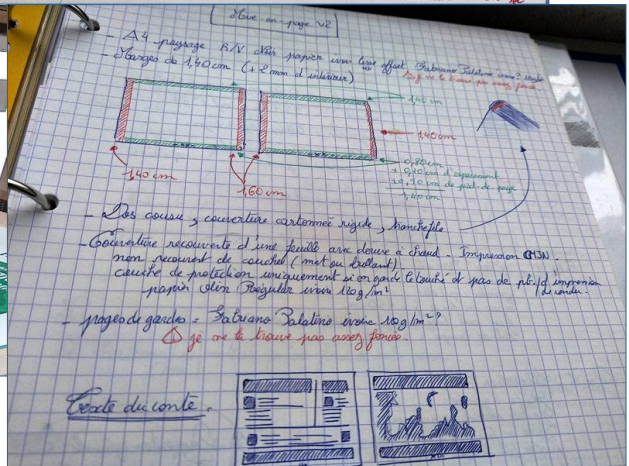 Mise en page V2
- A4 paysage R/V Noir papier ivoire lisse offset Fabriano Palatina ivoire?
⚠ je ne le trouve pas assez foncé.
- Marges de 1,40 cm (+ 2 mm d'intérieur)
1,40 cm
1,40 cm
0,80 cm
+ 0,10 cm d'espacement
+ 0,50 cm de pied de page
1,40 cm
1,40 cm
1,60 cm
- Dos cousu, couverture cartonnée rigide, tranchefile
- Couverture recouverte d'une feuille avec dorure à chaud - Impression CMJN.
non recouvert de couche (mat ou brillant)
couche de protection uniquement si on garde le touché et pas de pb. d'impression
/ de rendu.
papier Olin Regular ivoire 120g/m²
- pages de gardes = Fabriano Palatina ivoire 120g/m²?
⚠ je ne le trouve pas assez foncée.
Texte du conte.